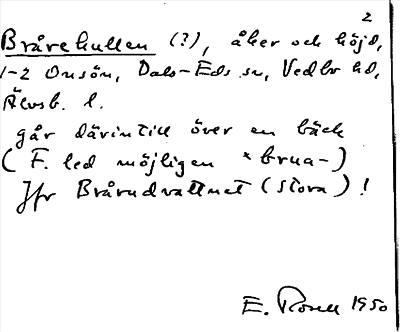 2
Brårekullen (?), åker och höjd,
1-2 Onsön, Dals-Eds sn, Vedbo hd,
Älvsb. l.
går därintill över en bäck
(F. led möjligen *brua-)
Jfr Brårudvattnet (stora)!
E. Rosell 1950